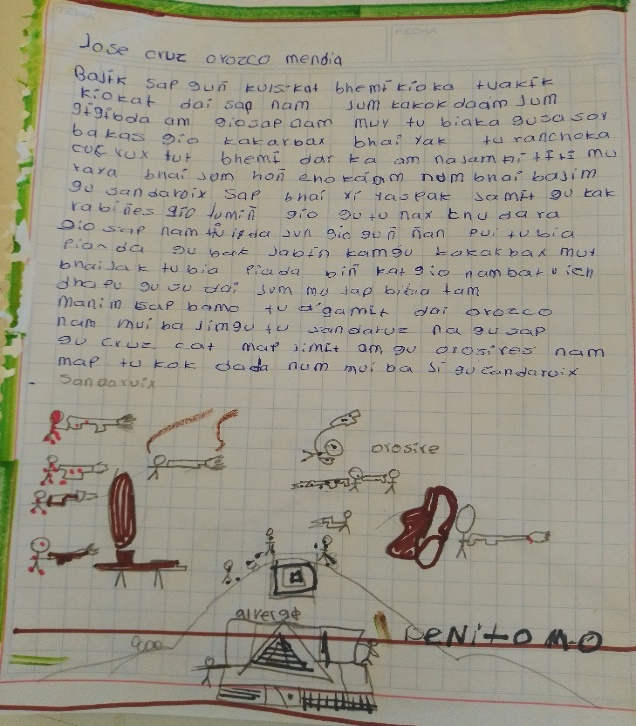 Jose cruz orozco mendia
Balik sap guñ kuis kat bhemi kioka tuakik
kiokat dai sap nam jum kakok daam jum
gigibda am giosap aam muy tu biaka gusa soy
bakas gio kakarbax bhai xak tu ranchoka
cux xux tut bhemi dar ka am najam
xara bhai jom hoñ chokdam nom bhai basim
gu sandaroix sap bhai xi xaspak jamit gu kak
rabiñes gio tumiñ gio gu tu nax knu dara
gio sap nam tu isda jun gio guñ ñan pui tu bia
pian da gu bak jabin kamgu kakarbax mut
bhai jak tu bia piada biñ kat gio nambar
dhapu gu su dai jum mu jap bibia tam
manim sap bamo tu a'gamit dai orozco
nam mui ba jimgu tu sandaruz na gu sap
gu cruz cat map jimit am gu orosires nam
map tu kok dada num mui ba ji gu candaroix
sandaruix
orosire
alverge
BeNito M.O